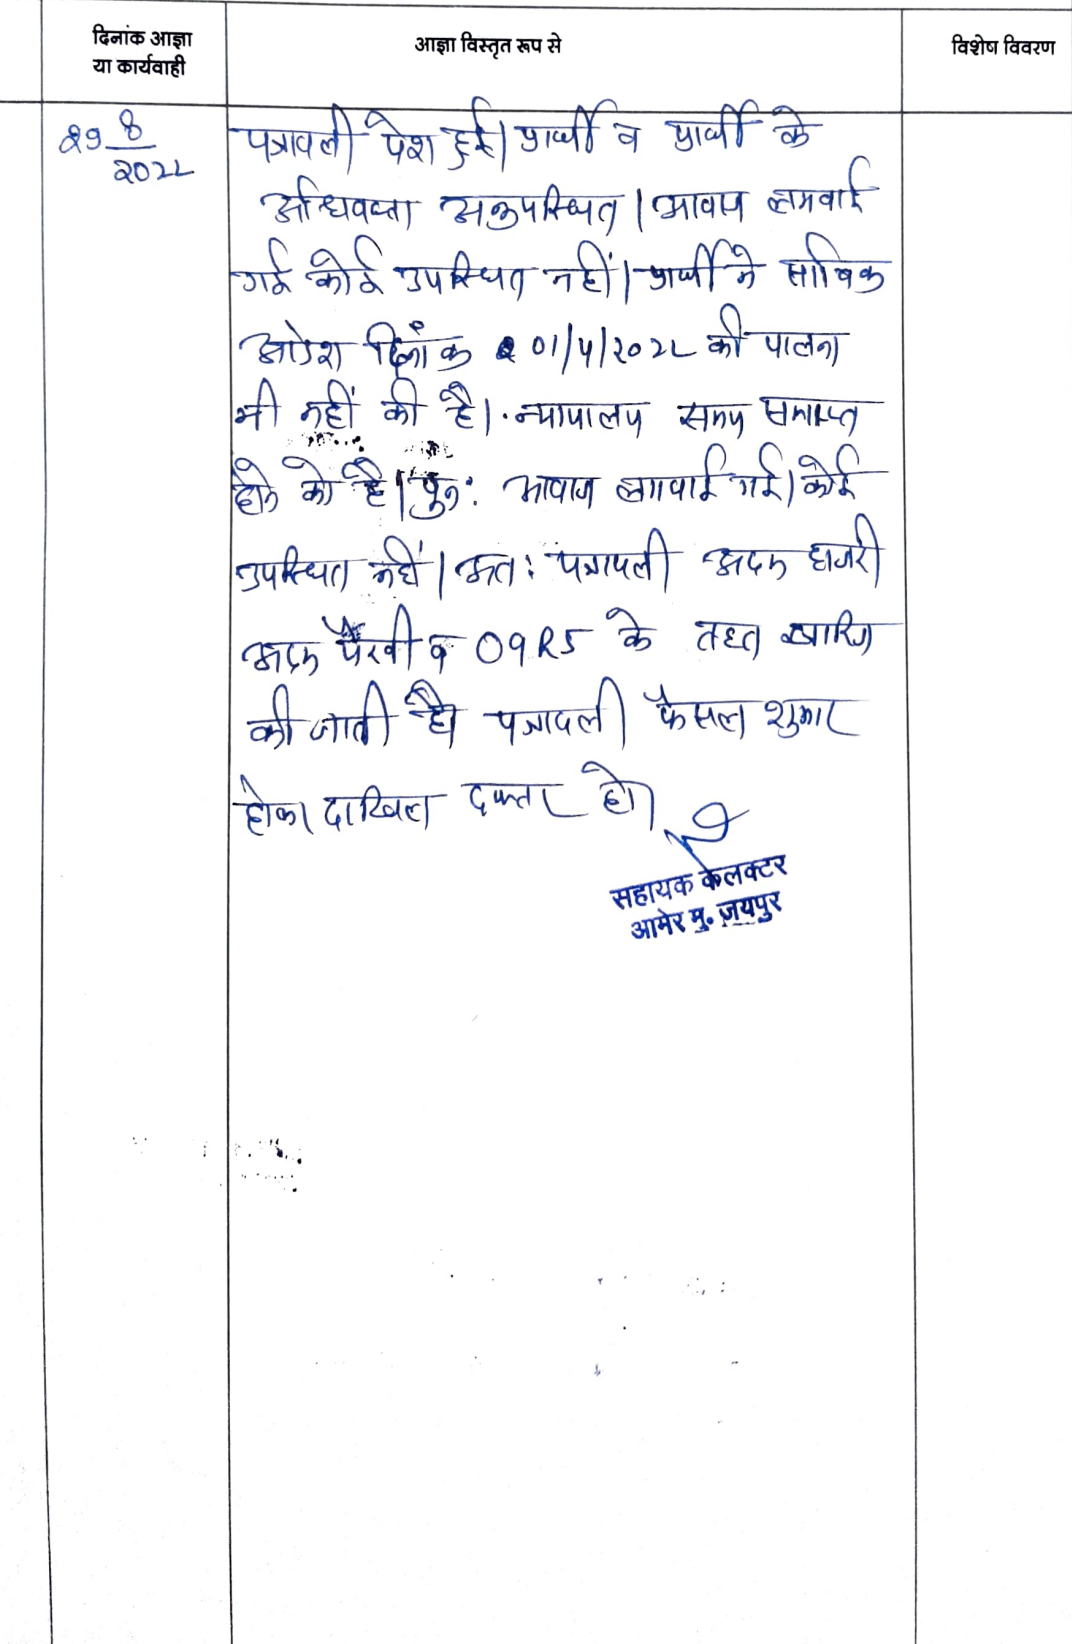 दिनांक आज्ञा
या कार्यवाही
आज्ञा विस्तृत रूप से
विशेष विवरण
29 8/2022
पत्रावली पेश हुई। प्रार्थी व प्रार्थी के
अधिवक्ता अनुपस्थित। आवाज लगवाई
गई कोई उपस्थित नहीं। प्रार्थी ने साबिक
आदेश दिनांक 01/4/2022 की पालना
भी नहीं की है। न्यायालय समय समाप्त
होने को है। पुन: आवाज लगवाई गई। कोई
उपस्थित नहीं। अत: पत्रावली अदम हाजरी
अदम पैरवी व O9R5 के तहत खारिज
की जाती है। पत्रावली फैसल शुमार
होकर दाखिल दफ्तर हो।
सहायक कलेक्टर
आमेर मु. जयपुर